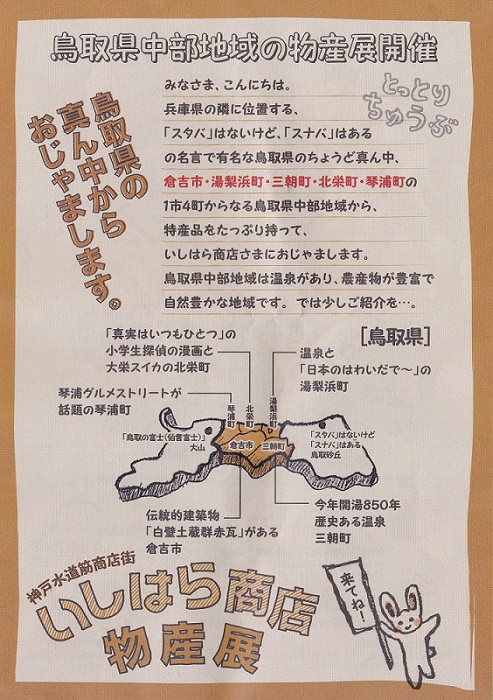 鳥取県中部地域の物産展開催
とっとり
ちゅうぶ
鳥取県の
真ん中から
おじゃまします。
みなさま、こんにちは。
兵庫県の隣に位置する、
「スタバ」はないけど、「スナバ」はある
の名言で有名な鳥取県のちょうど真ん中、
倉吉市・湯梨浜町・三朝町・北栄町・琴浦町の
1市4町からなる鳥取県中部地域から、
特産品をたっぷり持って、
いしはら商店さまにおじゃまします。
鳥取県中部地域は温泉があり、農産物が豊富で
自然豊かな地域です。では少しご紹介を…。
[鳥取県]
「真実はいつもひとつ」の
小学生探偵の漫画と
大栄スイカの北栄町
温泉と
「日本のはわいだで〜」の
湯梨浜町
琴浦グルメストリートが
話題の琴浦町
琴浦町
北栄町
湯梨浜町
倉吉市
三朝町
「鳥取の富士(伯耆富士)」
大山
「スタバ」はないけど
「スナバ」はある
鳥取砂丘
伝統的建築物
「白壁土蔵群赤瓦」がある
倉吉市
今年開湯850年
歴史ある温泉
三朝町
神戸水道筋商店街
いしはら商店
物産展
来てね!